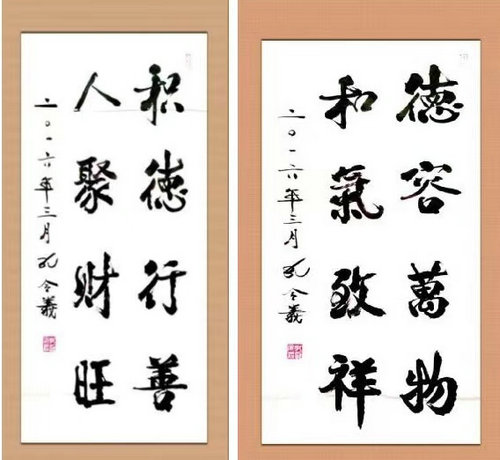 积德行善
人聚财旺
二〇一六年三月孔令義
德容萬物
和氣致祥
二〇一六年三月孔令義